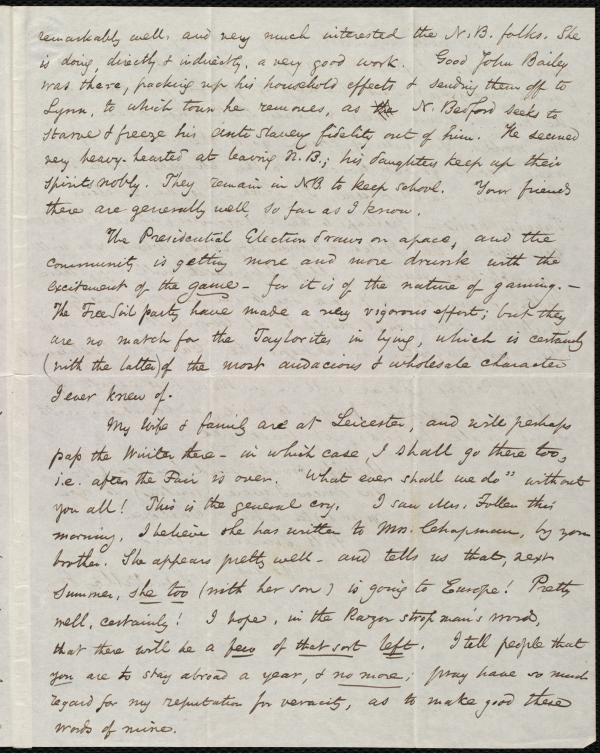 remarkably well, and very much interested the N.B. folks. She
is doing, directly & indirectly, a very good work. Good John Bailey
was there, packing up his household effects & sending them off to
Lynn, to which town he removes, as the N. Bedford seeks to
starve & freeze his anti slavery fidelity out of him. He seemed
very heavy-hearted at leaving N.B.; his daughters keep up their
spirits nobly. They remain in N.B. to keep school. Your friends
there are generally well, so far as I know.
The Presidential Election draws on apace, and the
community is getting more and more drunk with the
excitement of the game - for it is of the nature of gaming. -
The Free Soil party have made a very vigorous effort; but they
are no match for the Taylorites in lying, which is certainly
(with the latter) of the most audacious & wholesale character
I ever knew of.
My wife & family are at Leicester, and will perhaps
pass the Winter there - in which case, I shall go there too,
i.e. after the Fair is over. "What ever shall we do" without
you all! This is the general cry. I saw Mrs. Follen this
morning. I believe she has written to Mrs. Chapman, by your
brother. She appears pretty well - and tells us that, next
Summer, she too (with her son) is going to Europe! Pretty
well, certainly! I hope, in the Razor strop man's words,
that there will be a few of that sort left. I tell people that
you are to stay abroad a year, & no more; pray have so much
regard for my reputation for veracity, as to make good these
words of mine.